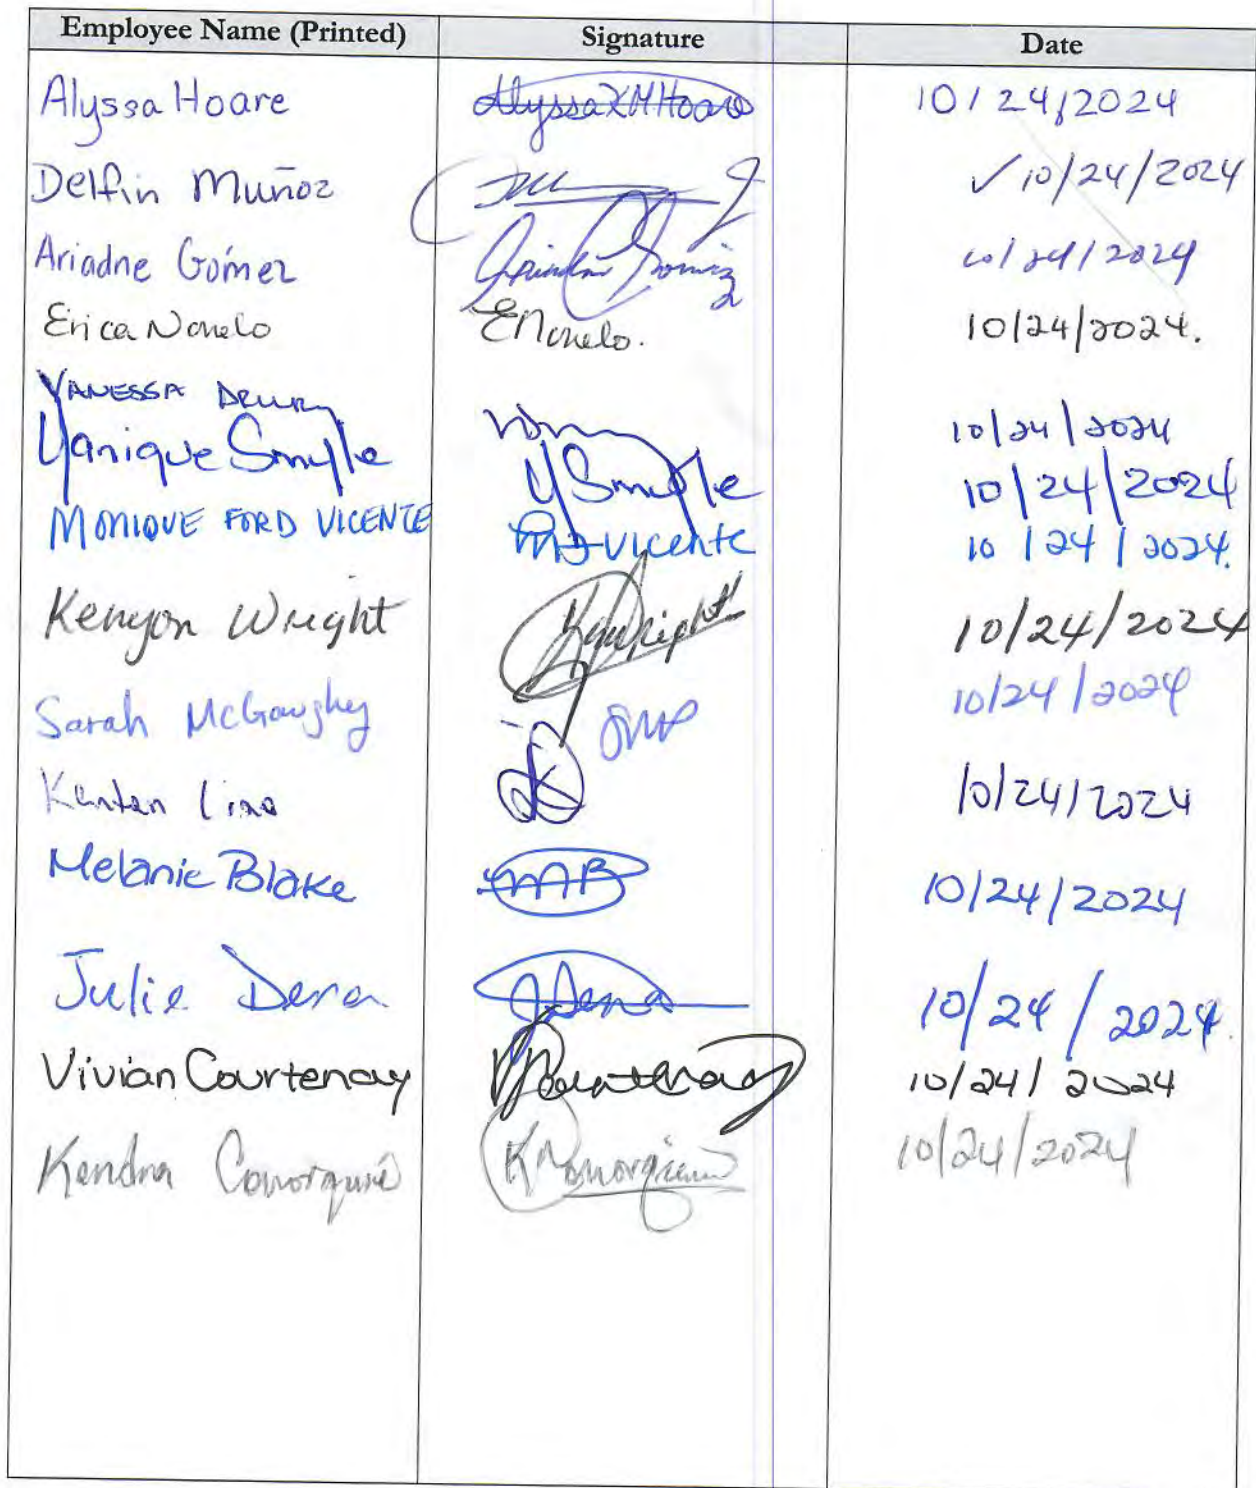 Employee Name (Printed) Signature Date
Alyssa Hoare AlyssaKMHoare 10/24/2024
Delfin Muñoz ✓10/24/2024
Ariadne Gómez 10/24/2024
Erica Novelo ENovelo. 10/24/2024.
VANESSA DRURY 10/24/2024
Yanique Smylle YSmylle 10/24/2024
MONIQUE FORD VICENTE Vicente 10/24/2024.
Kenyon Wright KWright 10/24/2024
Sarah McGaughey 10/24/2024
Kenten 10/24/2024
Melanie Blake MB 10/24/2024
Julie Dena JDena 10/24/2024.
Vivian Courtenay VCourtenay 10/24/2024
Kendra 10/24/2024